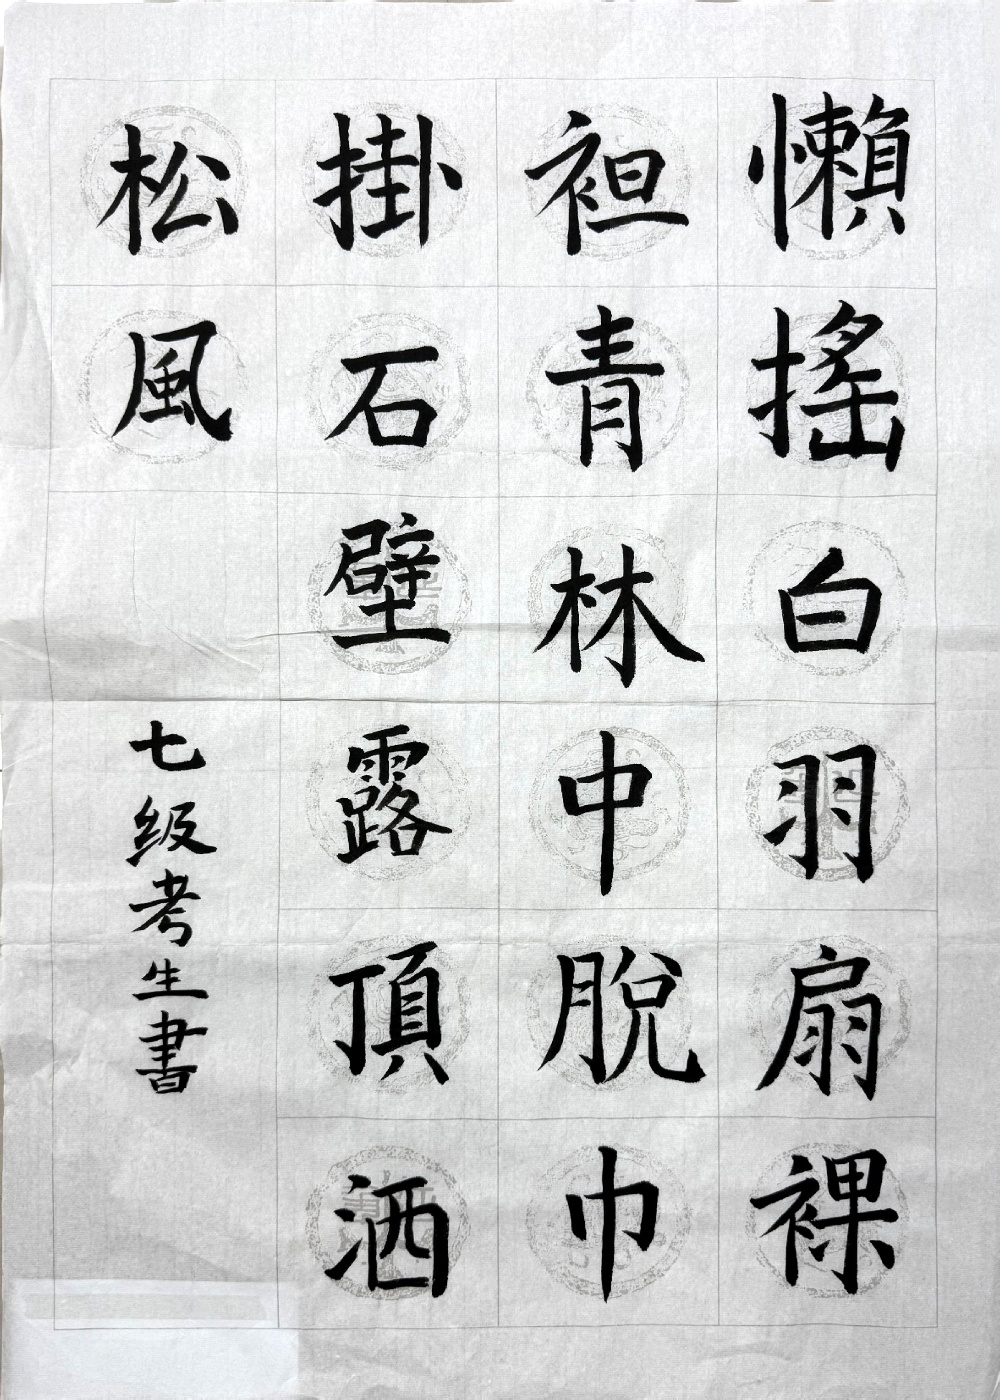 懶搖白羽扇裸
袒青林中脫巾
掛石壁露頂洒
松風
七级考生書